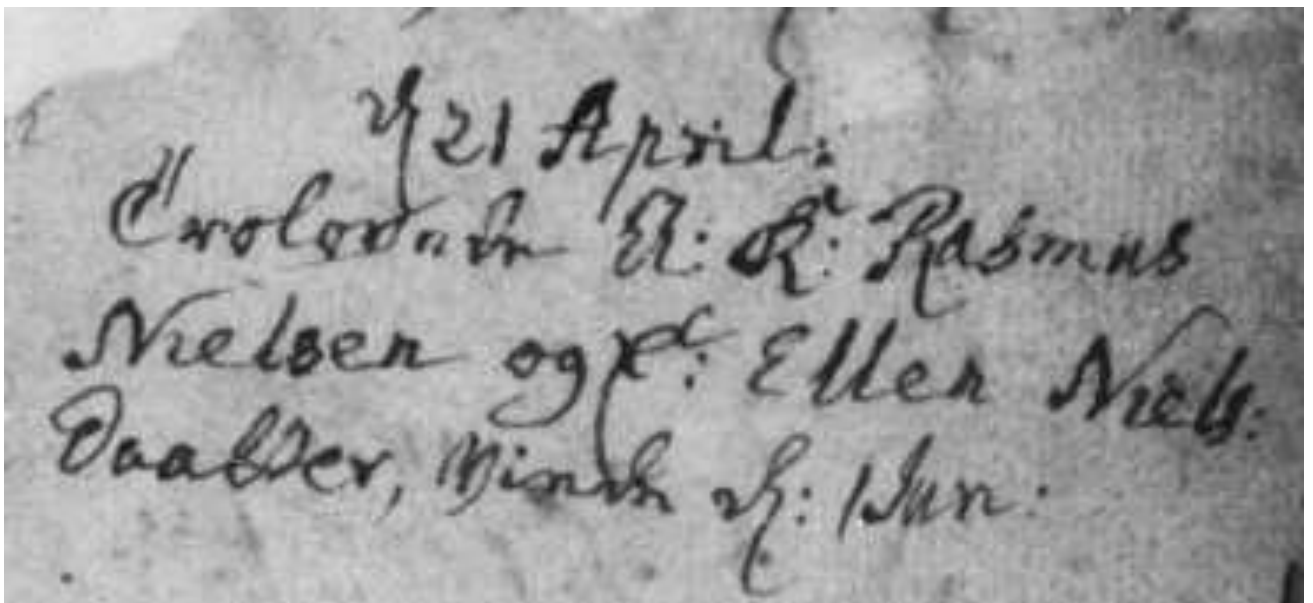 d 21 April:
Trolovede U: K: Rasmus
Nielsen og P: Ellen Niels:
Daatter, Viede d: 1 Jun: